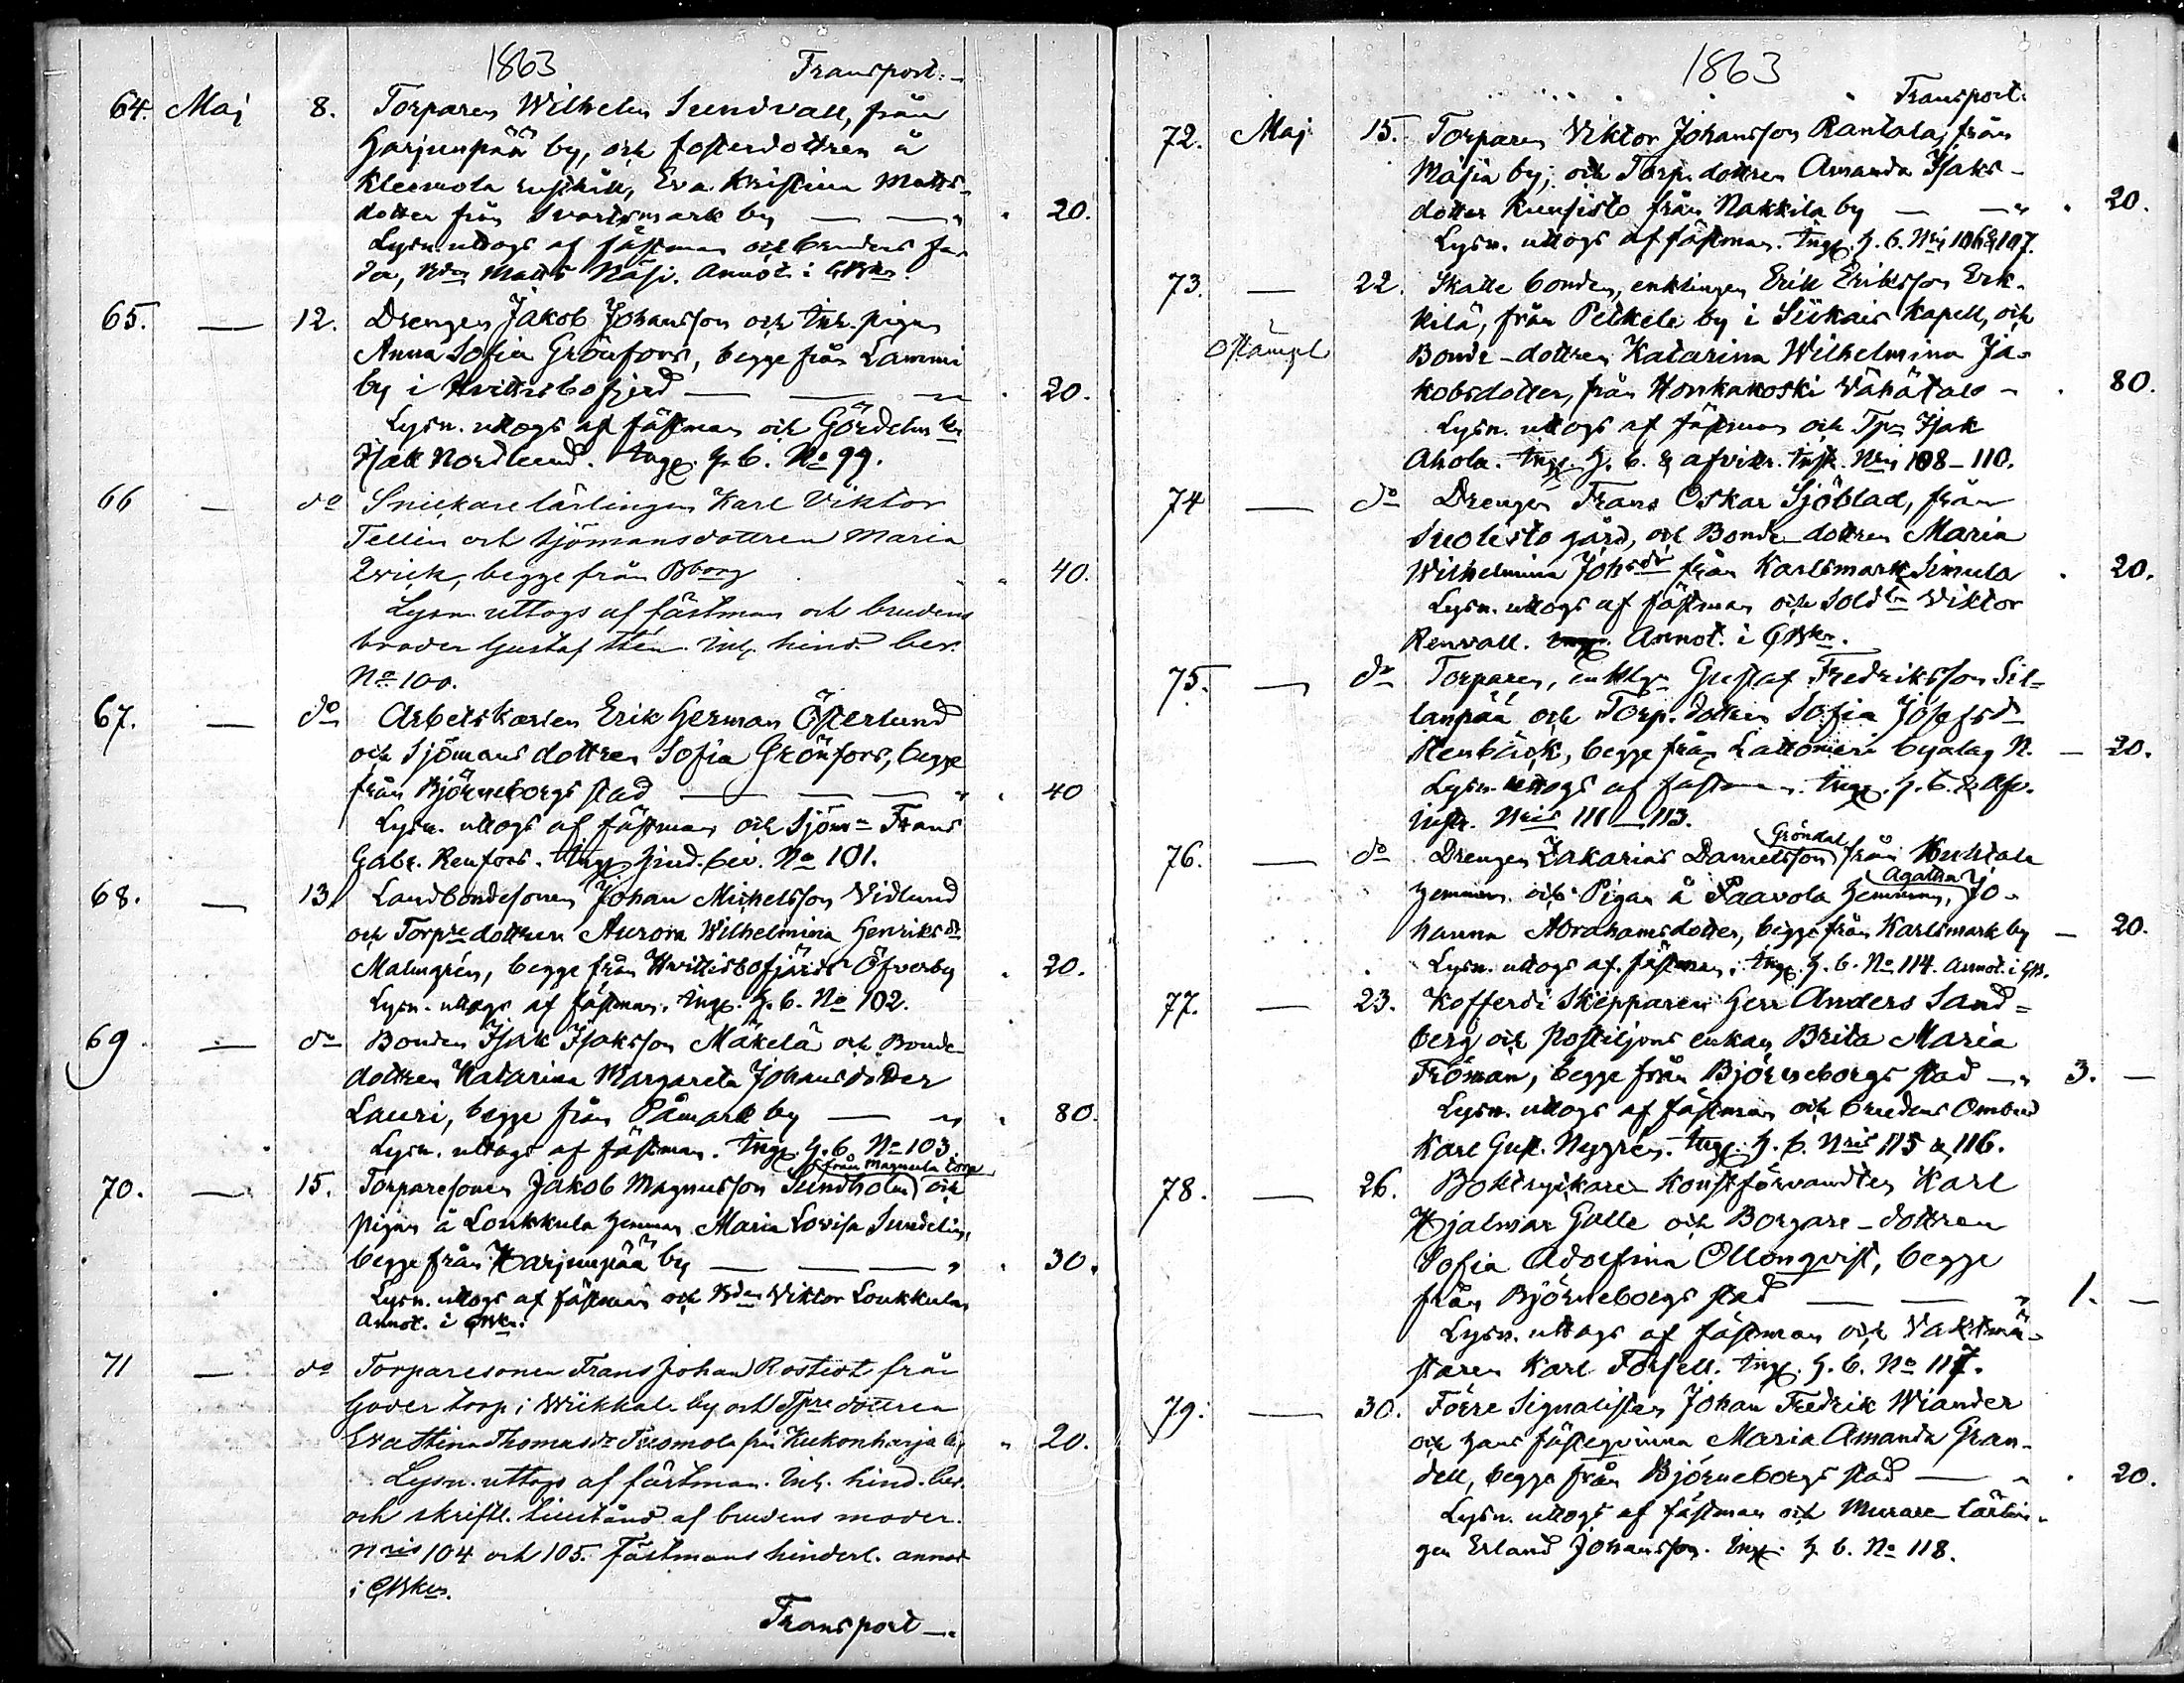 1863 Transport.
64. Maj 8. Torparen Wilhelm Sundvall, från
Harjunpää by, och fosterdottren å
Kleemola rusthåll, Eva Kristina Matts-
dotter från Svartsmark by — — " 20.
Lysn. uttogs af fästman och brudens fa-
der, Bdn Matts Näsi. Annot. i GBken.
65. — 12. Drengen Jakob Johansson och Inh. pigan
Anna Sofia Grönfors, begge från Lammi
by i Hvittisbofjerd — — " 20.
Lysn. uttogs af fästman och Gördelm. ln
Isak Nordlund. Ingg. H. b. No 99.
66 — do Snickarelärlingen Karl Viktor
Tellin och Sjömansdottren Maria
Qvick, begge från Bborg " 40.
Lysn uttogs af fästman och brudens
broder Gustaf Sten. Inl. hind. bev.
No 100.
67. — do Arbetskarlen Erik Herman Österlund
och Sjömans dottren Sofia Grönfors, begge
från Björneborgs stad — — — " 40
Lysn. uttogs af fästman och Sjöm:n Frans
Gabr. Renfors. Ingg Hind. bev. No 101.
68. — 13 Landbondesonen Johan Michelsson Vidlund
och Torpre dottren Aurora Wilhelmina Henriksdr
Malmgrén, begge från Hvittisbofjärds Öfverby " 20.
Lysn. uttogs af fästman. Ingg. H. b. No 102.
69 — do Bonden Isak Isaksson Mäkelä och Bonde-
dottren Katarina Margareta Johansdotter
Lauri, begge från Påmark by — " 80.
Lysn. uttogs af fästman. Ingg. H. b. No 103.
från Magnula torp
70. — 15. Torparesonen Jakob Magnusson Sundholm och
pigan å Loukkula hemman Maria Lovisa Sundelin,
begge från Harjunpää by — — — " 30.
Lysn. uttogs af fästman och Bdn Viktor Loukkula
Annot. i GBken.
71 — do Torparesonen Frans Johan Rostedt från
Goder torp i Wiikkala by och Tpre dottren
Eva Stina Thomasdr Tuomola från Kukonharja by " 20.
Lysn. uttogs af fästman. Inl. hind. bev.
och skriftl. tillstånd af brudens moder.
Nris 104 och 105. Fästmans hinderl. annot
i GBken.
Transport —
1863
Transport.
72. Maj 15. Torparen Viktor Johansson Rantala, från
Masia by, och Torp. dottren Amanda Isaks-
dotter Kuusisto från Nakkila by — — " 20.
Lysn. uttogs af fästman. Ingg. H. b. Nris 106 & 107.
73. — 22. Skatte bonden, enklingen Erik Eriksson Erk-
kilä, från Peikele by i Siikais Kapell, och
Ostämpl Bonde-dottren Katarina Wilhelmina Ja-
kobsdotter, från Honkakoski Vähätalo " 80.
Lysn. uttogs af fästman och Tpn Isak
Ahola. Ingg. H. b. & afvitr. instr. Nris 108-110.
74 — do Drengen Frans Oskar Sjöblad, från
Suolisto gård, och Bonde-dottren Maria
Wilhelmina Johsdr från Karlsmark Simula " 20.
Lysn. uttogs af fästman och Soldtn Viktor
Renvall. Annot. i GBken.
75. — do Torparen, enklgn Gustaf Fredriksson Sil-
lanpää och Torp. dottren Sofia Josefsdr
Stenbäck, begge från Lattomeri byalag N. — 20.
Lysn. uttogs af fästman. Ingg. H. b. & Afv.
instr. Nris 111 — 113.
Gröndal
76. — do Drengen Zakarias Danielsson från Kuhtala
Agatha
hemman och Pigan å Paavola hemman, Jo-
hanna Abrahamsdotter, begge från Karlsmark by — 20.
Lysn. uttogs af fästman. Ingg. H. b. No 114. Annot. i GB.
77. — 23. Kofferdi Skepparen Herr Anders Sand-
berg och postiljons enkan Brita Maria
Fröman, begge från Björneborgs stad — " 3. —
Lysn. uttogs af fästman och brudens Ombud
Karl Gust. Nygrén. Ingg. H. b. Nris 115 & 116.
78. — 26. Boktryckare Konstförvandten Karl
Hjalmar Galle och Borgare-dottren
Sofia Adolfina Ollonqvist, begge
från Björneborgs stad — — " 1. —
Lysn. uttogs af fästman och Vaktmä-
staren Karl Forsell. Ingg. H. b. No 117.
79. — 30. Förre Signalisten Johan Fredrik Wiander
och hans fästeqvinna Maria Amanda Gran-
dell, begge från Björneborgs stad — " 20.
Lysn. uttogs af fästman och Murare lärlin-
gen Erland Johansson. Ingg. H. b. No 118.